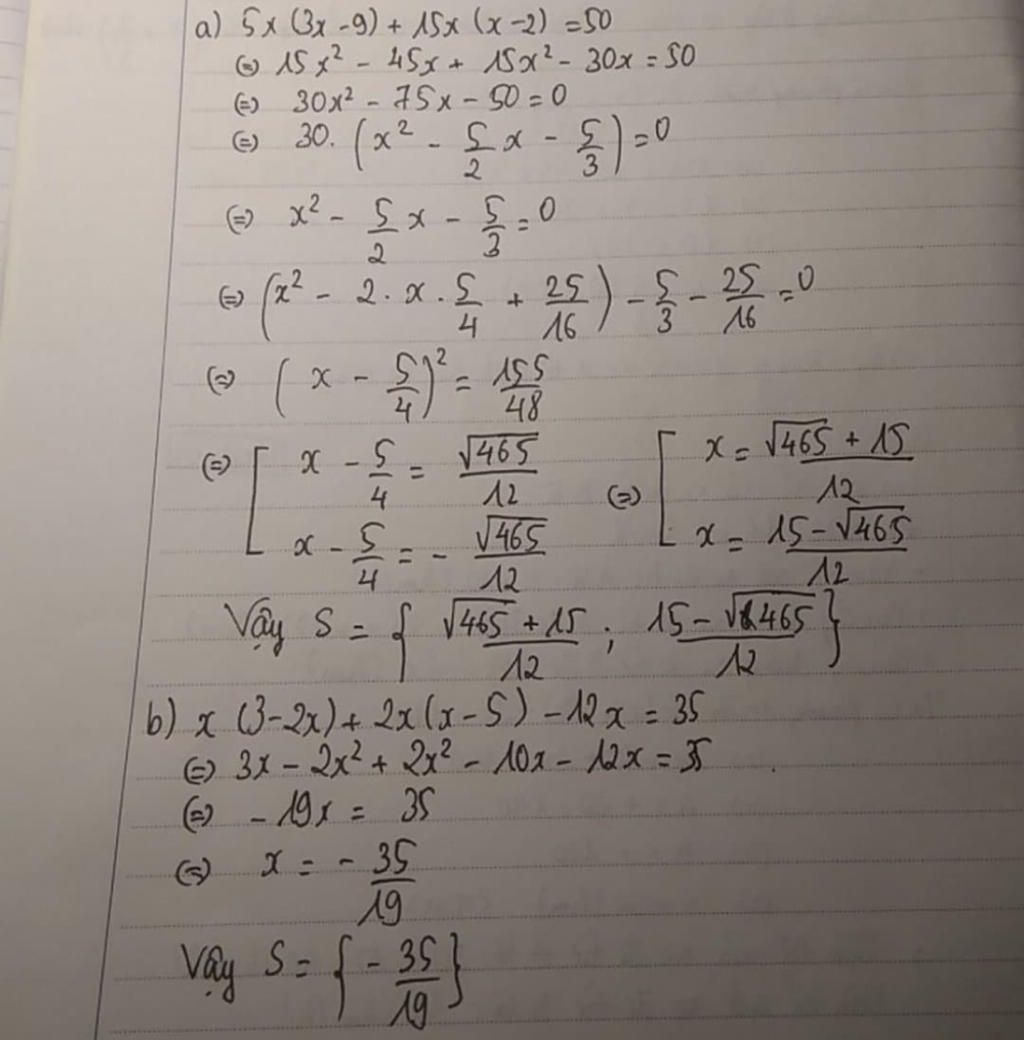 a) 5x(3x-9) + 15x(x-2) = 50
⇔ 15x² - 45x + 15x² - 30x = 50
⇔ 30x² - 75x - 50 = 0
⇔ 30.(x² - 5/2 x - 5/3) = 0
⇔ x² - 5/2 x - 5/3 = 0
⇔ (x² - 2.x.5/4 + 25/16) - 5/3 - 25/16 = 0
⇔ (x - 5/4)² = 155/48
⇔ [ x - 5/4 = √465/12 ⇔ [ x = (√465 + 15)/12
x - 5/4 = - √465/12 x = (15 - √465)/12
Vậy S = { (√465 + 15)/12 ; (15 - √465)/12 }
b) x(3-2x) + 2x(x-5) - 12x = 35
⇔ 3x - 2x² + 2x² - 10x - 12x = 35
⇔ - 19x = 35
⇔ x = - 35/19
Vậy S = { - 35/19 }